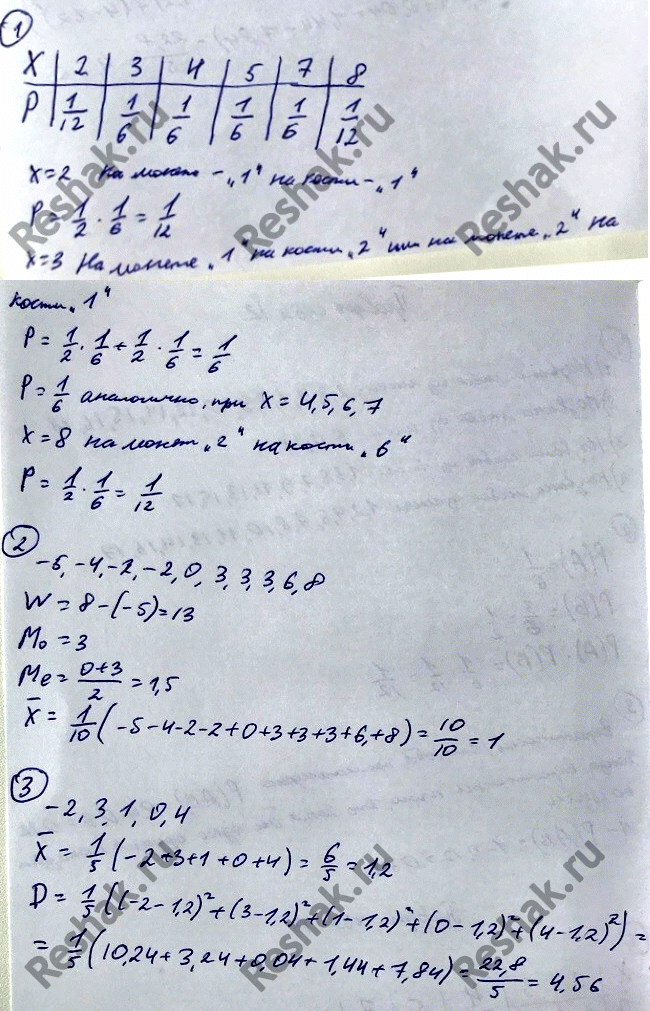 1
X | 2 | 3 | 4 | 5 | 7 | 8
P | 1/12 | 1/6 | 1/6 | 1/6 | 1/6 | 1/12
X=2 На монете - „1“ на кости - „1“
P = 1/2 · 1/6 = 1/12
X=3 На монете „1“ на кости „2“ или на монете „2“ на
кости „1“
P = 1/2 · 1/6 + 1/2 · 1/6 = 1/6
P = 1/6 аналогично, при X = 4,5,6,7
X=8 на монет „2“ на кости „6“
P = 1/2 · 1/6 = 1/12
2
-5, -4, -2, -2, 0, 3, 3, 3, 6, 8
W = 8 - (-5) = 13
Mo = 3
Me = (0+3)/2 = 1,5
X̄ = 1/10 (-5-4-2-2+0+3+3+3+6+8) = 10/10 = 1
3
-2, 3, 1, 0, 4
X̄ = 1/5 (-2+3+1+0+4) = 6/5 = 1,2
D = 1/5 ((-2-1,2)² + (3-1,2)² + (1-1,2)² + (0-1,2)² + (4-1,2)²) =
= 1/5 (10,24 + 3,24 + 0,04 + 1,44 + 7,84) = 22,8/5 = 4,56
Reshak.ru
Reshak.ru
Reshak.ru
Reshak.ru
Reshak.ru
Reshak.ru
Reshak.ru
Reshak.ru
Reshak.ru